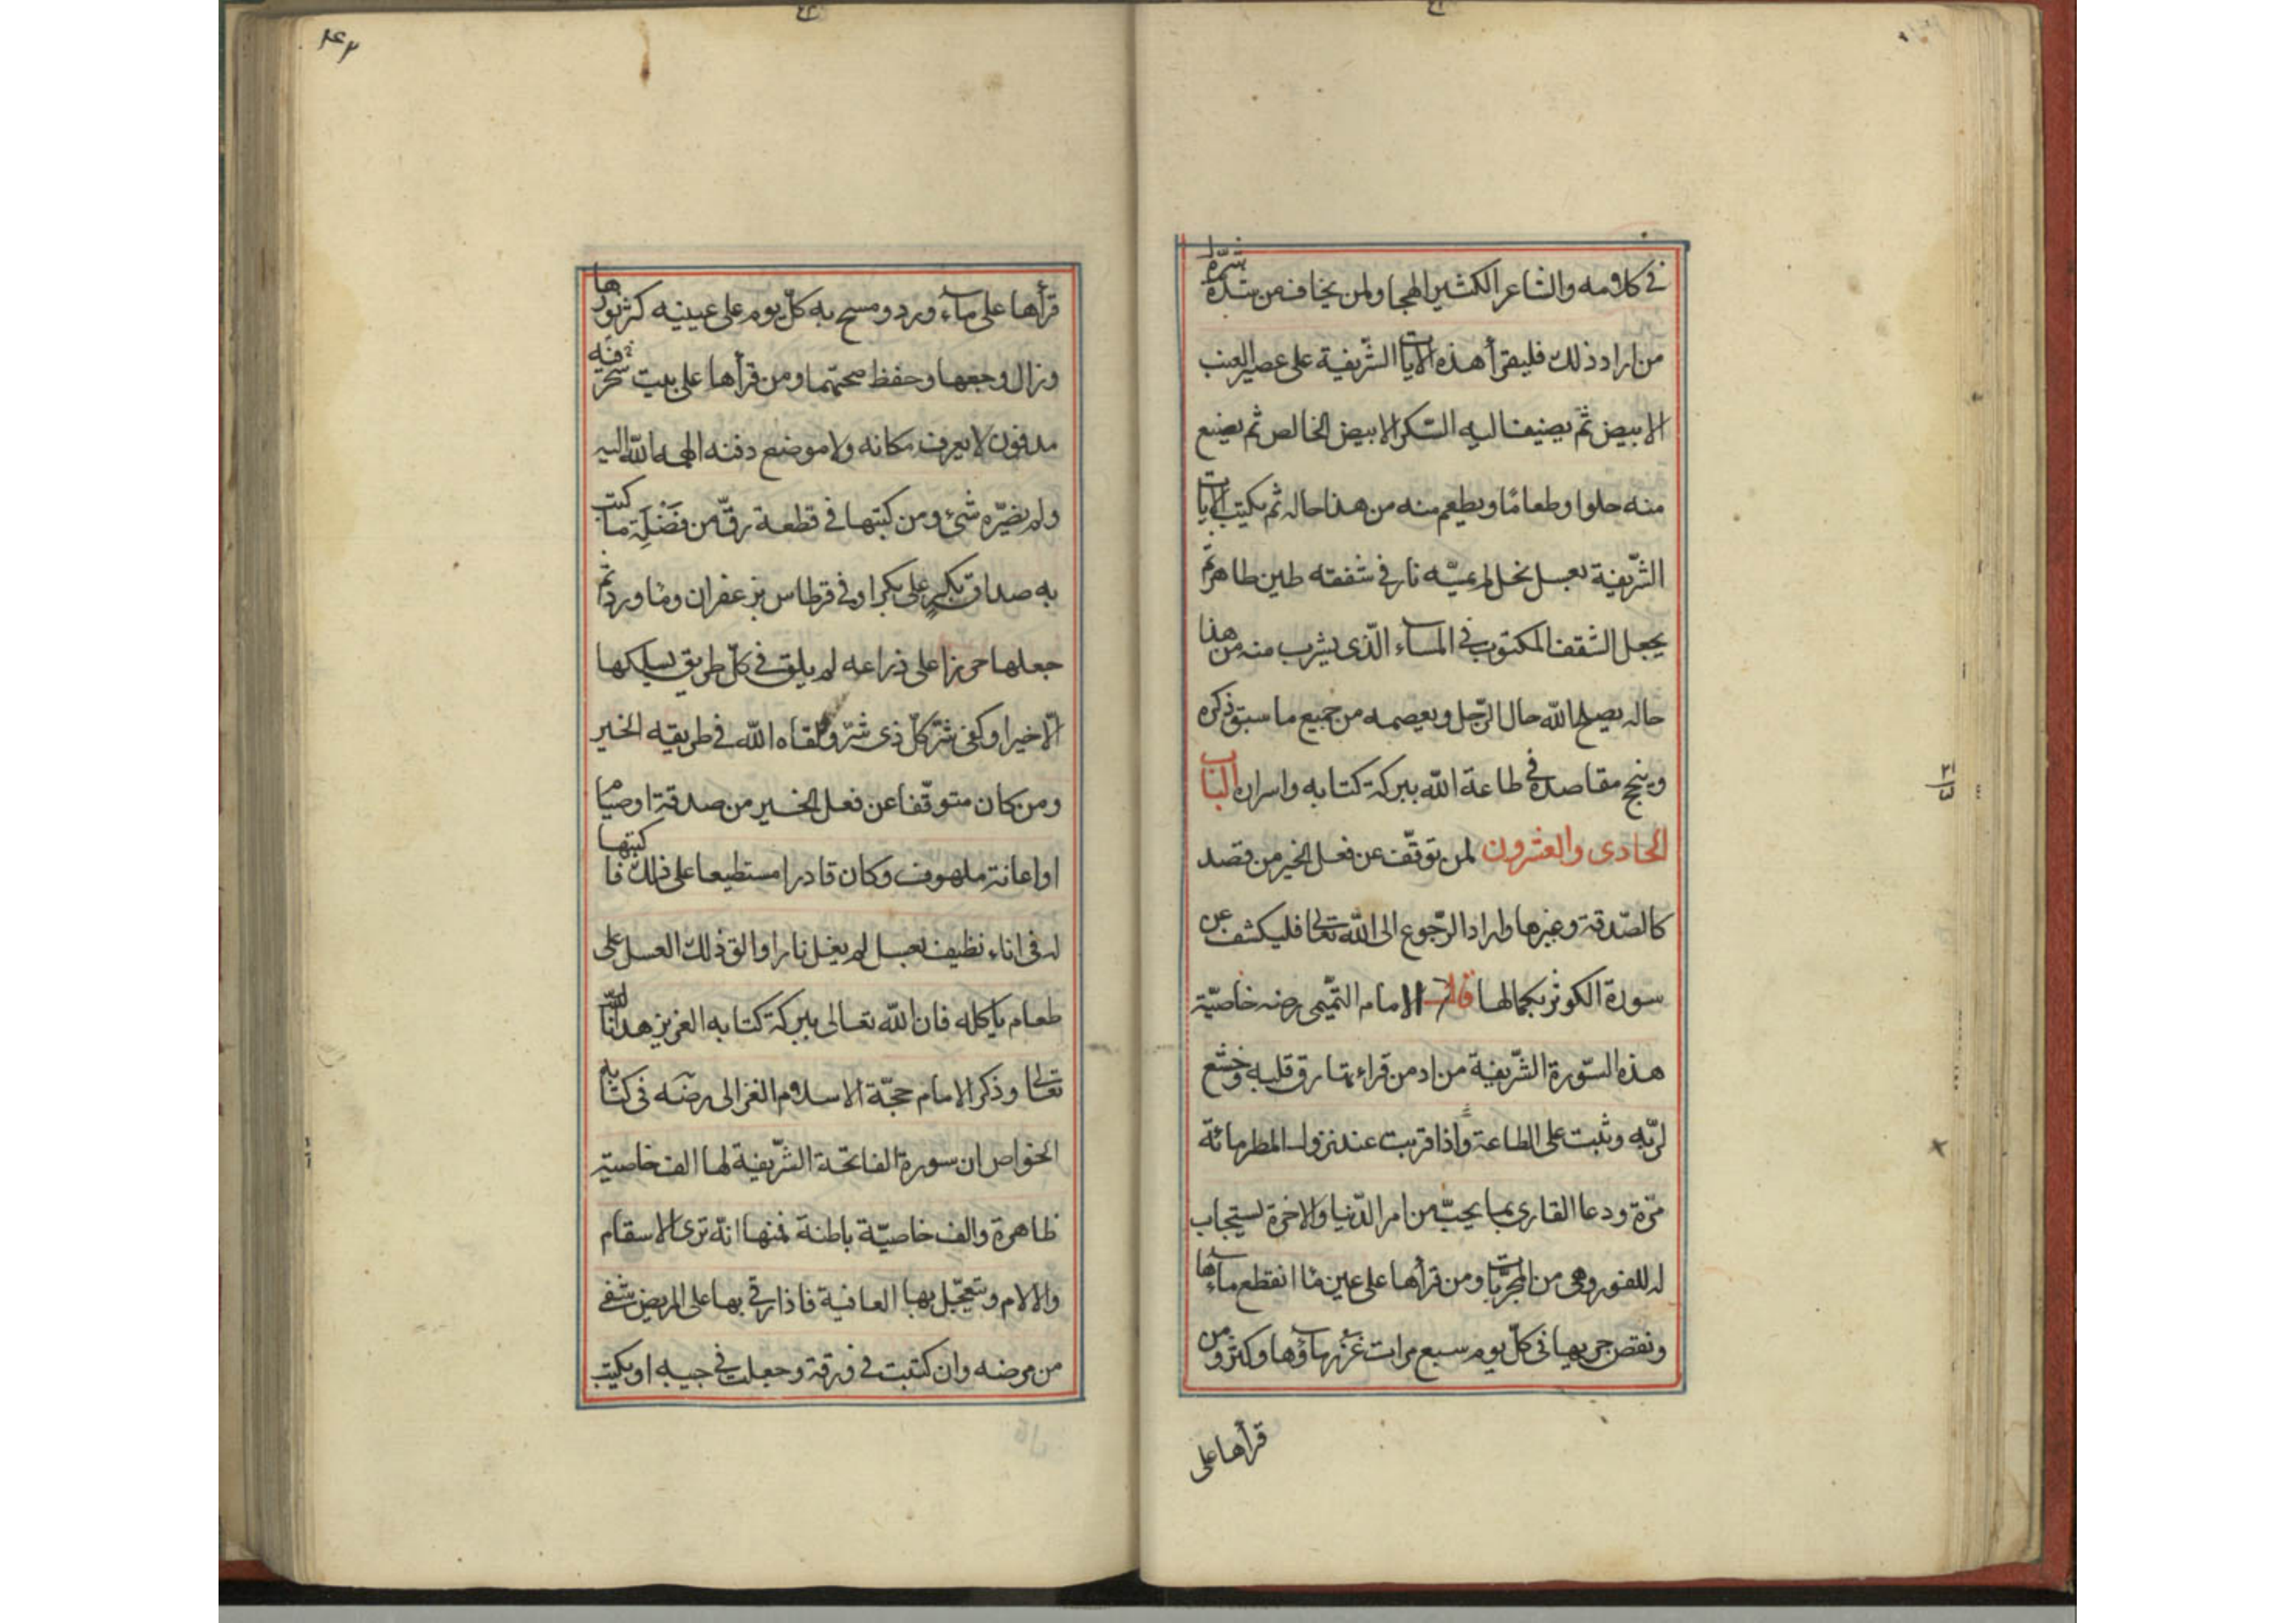 في كلامه والشاعر الكثير الهجا ولمن يخاف من شره
من اراد ذلك فليقرأ هذه الايات الشريفة على عصير العنب
الابيض ثم يضيف اليه السكر الابيض الخالص ثم يصنع
منه حلوا وطعاما ويطعم منه من هذا حاله ثم يكتب الايات
الشريفة بعسل نخل لم يمسّه نار في شقفه طين طاهر ثم
يجعل الشقف المكتوب في الماء الّذى يشرب منه من هذا
حاله يصلح الله حال الرّجل ويعصمه من جميع ما سبق ذكره
وينجح مقاصده في طاعة الله ببركة كتابه واسراره الباب
الحادى والعشرون لمن توقّف عن فعل الخير من قصد
كالصّدقة وغيرها واراد الرّجوع الى الله تعالى فليكشف عن
سورة الكوثر بكمالها قال الامام التّميمى رضه خاصّيّة
هذه السّورة الشّريفة من ادمن قراءتها رق قلبه وخشع
لربّه وثبت على الطاعة واذا قريت عند نزول المطر مائة
مرّة ودعا القارى بما يحبّ من امر الدّنيا والاخرة يستجاب
له للفور وهى من المجرّبات ومن قرأها على عين ما انقطع ماءها
ونقص جريها فى كلّ يوم سبع مرات غزر ماؤها وكثر ومن
قرأها على
٢١
قرأها على ماء ورد ومسح به كلّ يوم على عينيه كثر نورها
وزال وجعها وحفظ صحتهما ومن قرأها على بيت فيه سحر
مدفون لا يعرف مكانه ولا موضع دفنه الهمه الله اليه
ولم يضرّه شئ ومن كتبها في قطعة رقّ من فضلة ما كتب
به صداق بكر على بكر او في قرطاس بزعفران وماورد ثم
جعلها حرزا على ذراعه لم يلق في كلّ طريق يسلكها
الّا خيرا وكفى شرّ كلّ ذى شرّ ولقاه الله في طريقه الخير
ومن كان متوقّفا عن فعل الخير من صدقة او صيام
او اعانة ملهوف وكان قادرا مستطيعا على ذلك فاكتبها
له فى اناء نظيف بعسل لم يغل نارا والق ذلك العسل على
طعام ياكله فان الله تعالى ببركة كتابه العزيز هدانا الله
تعالى وذكر الامام حجّة الاسلام الغزالى رضه فى كتابه
الخواص ان سورة الفاتحة الشّريفة لها الف خاصية
ظاهرة والف خاصيّة باطنة فمنها انّه ترى الاسقام
والالام وتتعجّل بها العافية فاذا رقى بها على المريض شفى
من مرضه وان كتبت فى ورقة وجعلت في جيبه او يكتب